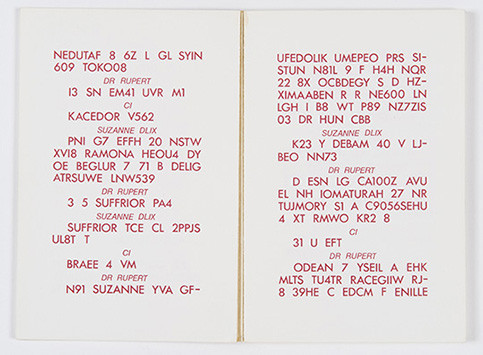 NEDUTAF 8 6Z L GL SYIN
609 TOKO08
DR RUPERT
I3 SN EM41 UVR M1
CI
KACEDOR V562
SUZANNE DLIX
PNI G7 EFFH 20 NSTW
XVI8 RAMONA HEOU4 DY
OE BEGLUR 7 71 B DELIG
ATRSUWE LNW539
DR RUPERT
3 5 SUFFRIOR PA4
SUZANNE DLIX
SUFFRIOR TCE CL 2PPJS
UL8T T
CI
BRAEE 4 VM
DR RUPERT
N91 SUZANNE YVA GF-
UFEDOLIK UMEPEO PRS SI-
STUN N81L 9 F H4H NQR
22 8X OCBDEGY S D HZ-
XIMAABEN R R NE600 LN
LGH I B8 WT P89 NZ7ZIS
03 DR HUN CBB
SUZANNE DLIX
K23 Y DEBAM 40 V LJ-
BEO NN73
DR RUPERT
D ESN LG CA100Z AVU
EL NH IOMATURAH 27 NR
TUJMORY S1 A C9056SEHU
4 XT RMWO KR2 8
CI
31 U EFT
DR RUPERT
ODEAN 7 YSEIL A EHK
MLTS TU4TR RACEGIIW RJ-
8 39HE C EDCM F ENILLE